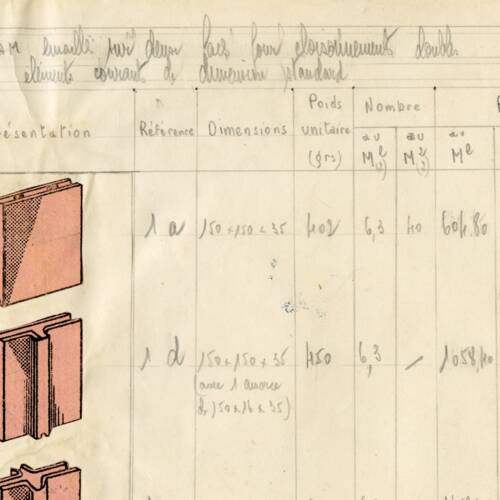 émaillé sur deux faces pour cloisonnements doubles
éléments courants de dimension standard
ésentation
Référence
Dimensions
Poids
unitaire
(grs)
Nombre
au
Ml
(1)
au
M2
(2)
au
Ml
1 a
150 x 150 x 35
402
6,3
40
604,80
1 d
150 x 150 x 35
(avec 1 amorce
de 150 x 16 x 35)
450
6,3
1058,40